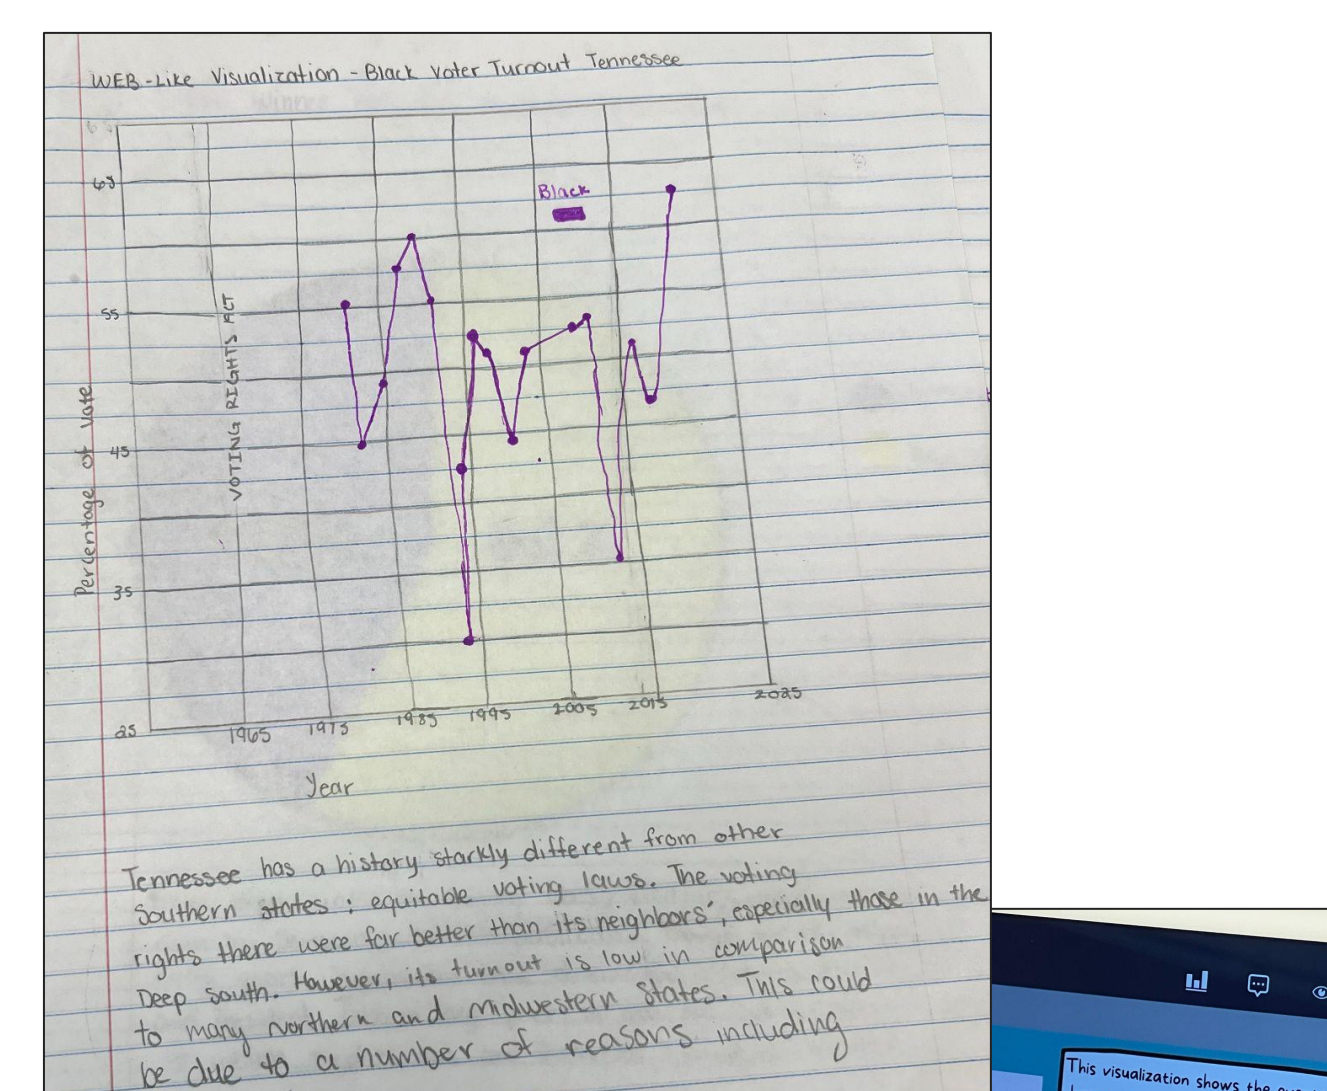 WEB-Like Visualization - Black Voter Turnout Tennessee
65
Black
55
VOTING RIGHTS ACT
Percentage of Vote
45
35
25
1965
1975
1985
1995
2005
2015
2025
Year
Tennessee has a history starkly different from other
Southern states: equitable voting laws. The voting
rights there were far better than its neighbors', especially those in the
Deep South. However, its turnout is low in comparison
to many Northern and Midwestern States. This could
be due to a number of reasons including
This visualization shows the